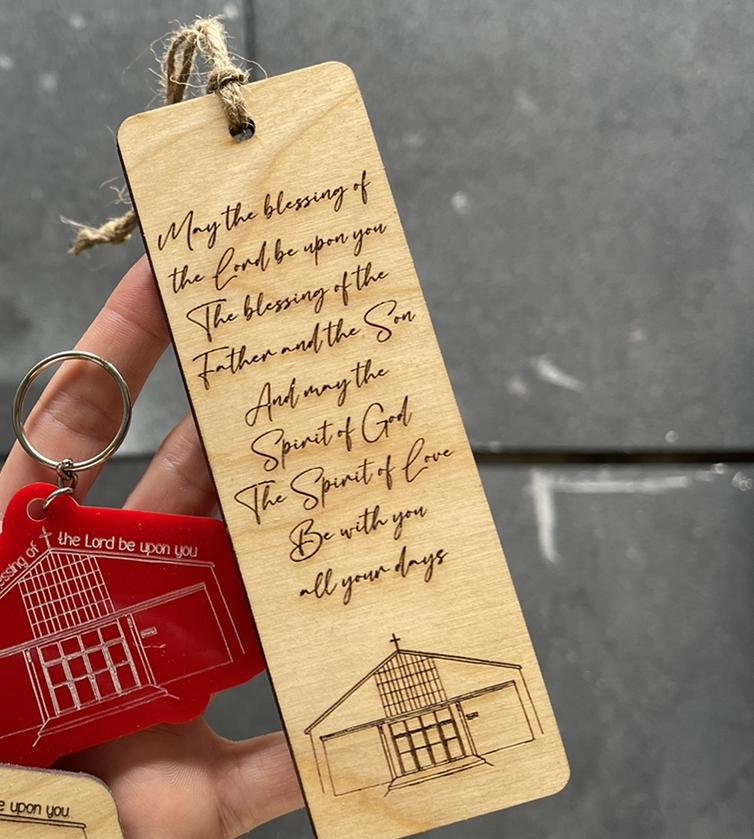 May the blessing of
the Lord be upon you
The blessing of the
Father and the Son
And may the
Spirit of God
The Spirit of Love
Be with you
all your days
essing of the Lord be upon you
e upon you